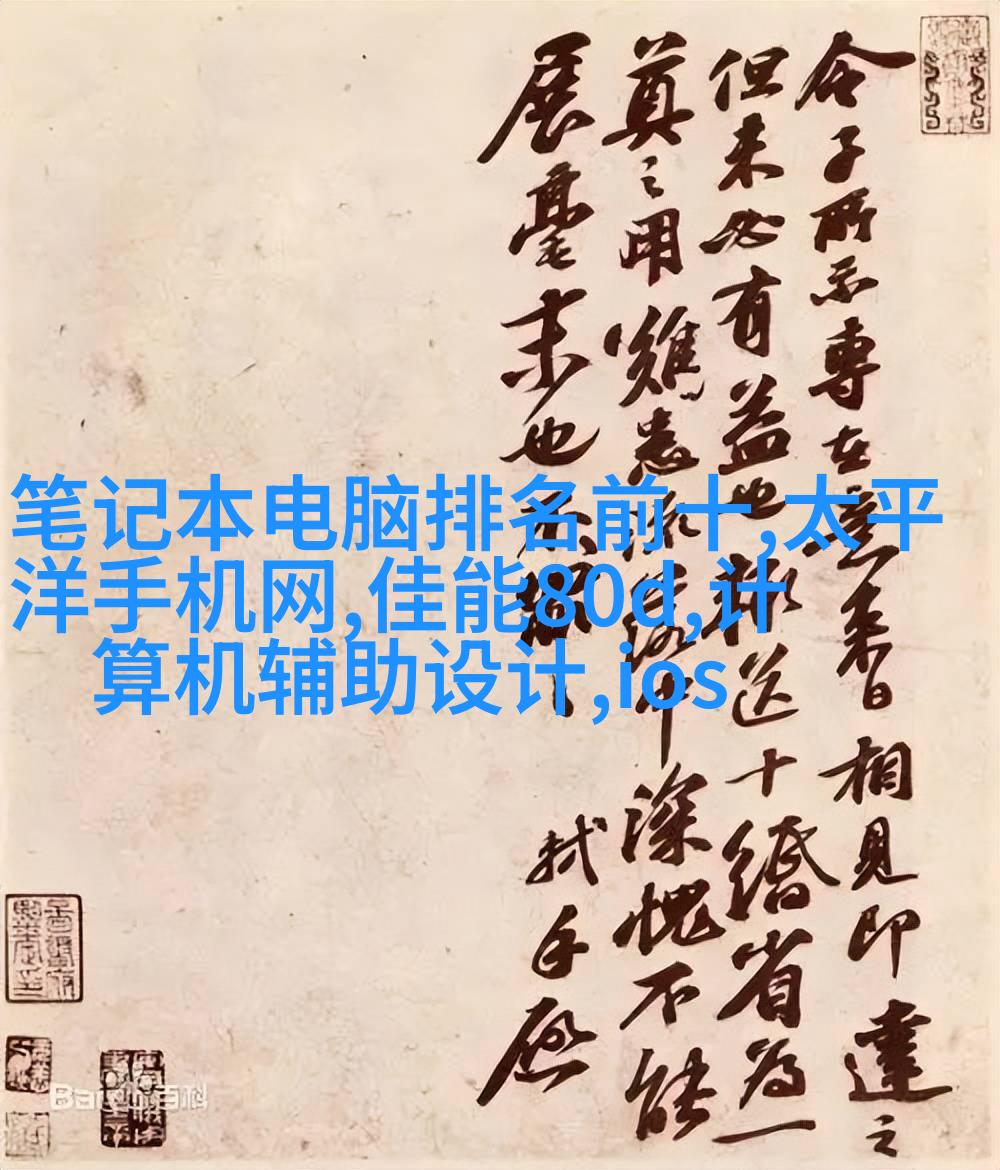 令子所示專在意來日相見即達之
但未必有益也輒送十緡省為一
奠之用中深愧不能
展毫末也
軾手啟
笔记本电脑排名前十,太平
洋手机网,佳能80d,计
算机辅助设计,ios
Bai百科